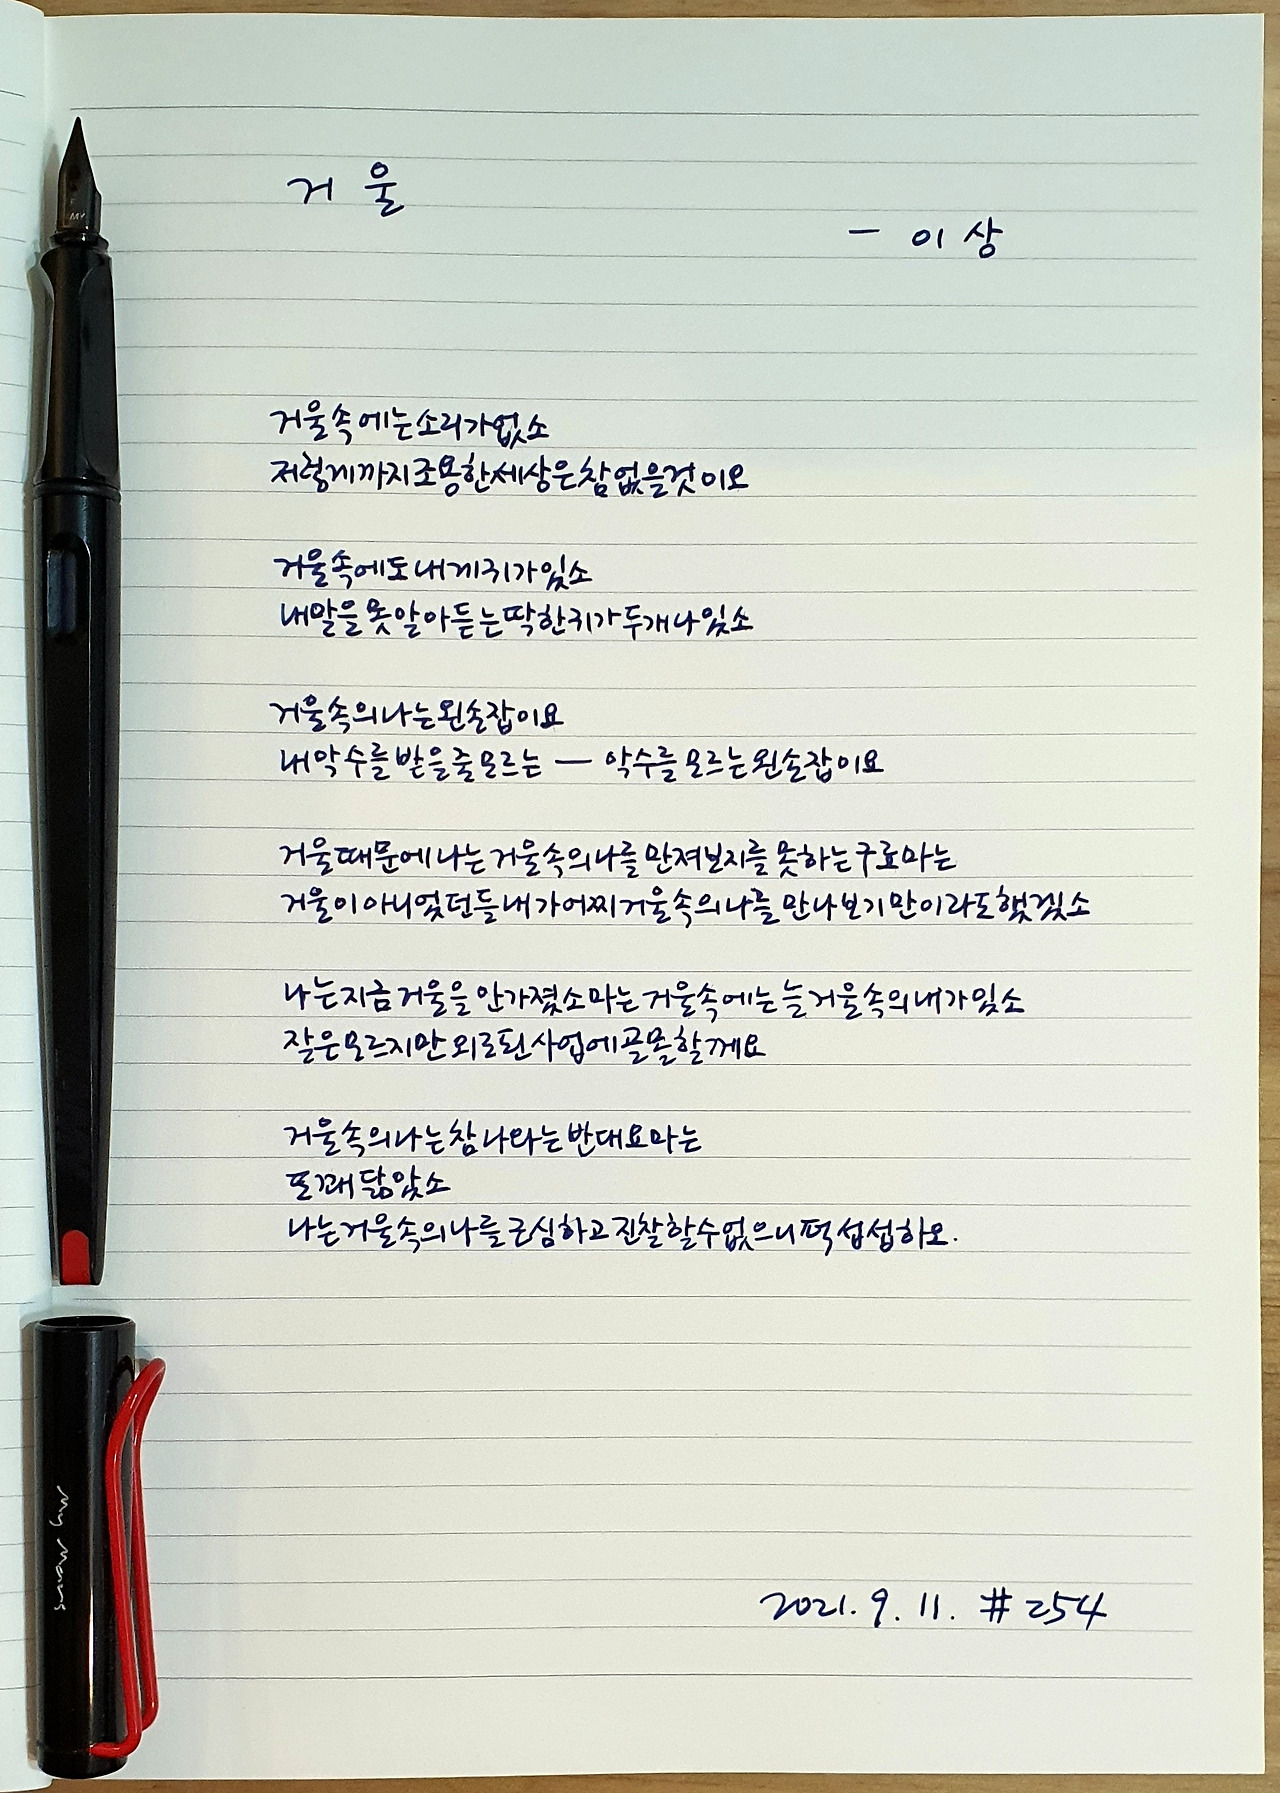 거 울
- 이 상
거울속에는소리가없소
저렇게까지조용한세상은참없을것이요
거울속에도내게귀가있소
내말을못알아듣는딱한귀가두개나있소
거울속의나는왼손잡이요
내악수를받을줄모르는 — 악수를모르는왼손잡이요
거울때문에나는거울속의나를만져보지를못하는구료마는
거울이아니었던들내가어찌거울속의나를만나보기만이라도했겠소
나는지금거울을안가졌소마는거울속에는늘거울속의내가있소
잘은모르지만외로된사업에골몰할께요
거울속의나는참나와는반대요마는
또꽤닮았소
나는거울속의나를근심하고진찰할수없으니퍽섭섭하오.
2021. 9. 11. #254